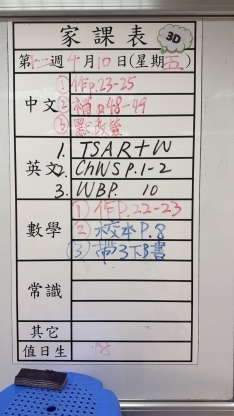 家課表
3D
第十二週4月10日(星期五)
中文
①作p.23-25
②補p.48-49
③默
英文
1. TSAR+W
2. ChWS p.1-2
3. WBP. 10
數學
(1) 作P.22-23
(2) 校本P.8
(3) 帶3下B書
常識
其它
值日生
18